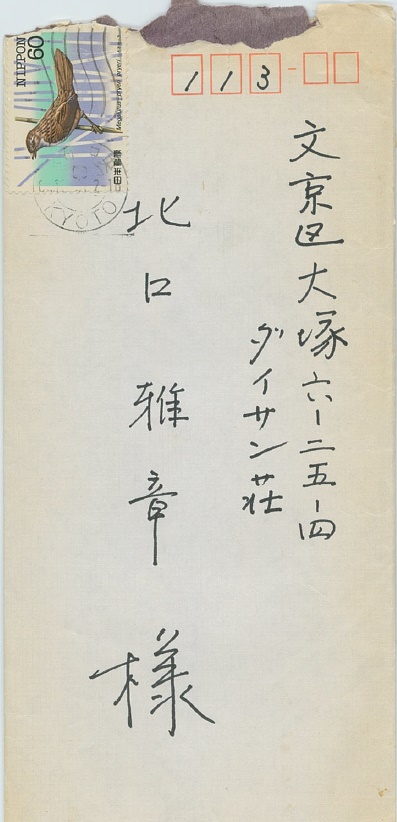 113-
文京区大塚六-二五-四
ダイサン荘
北口雅章様
NIPPON
60
Megalurus pryeri pryeri
日本郵便
KYOTO